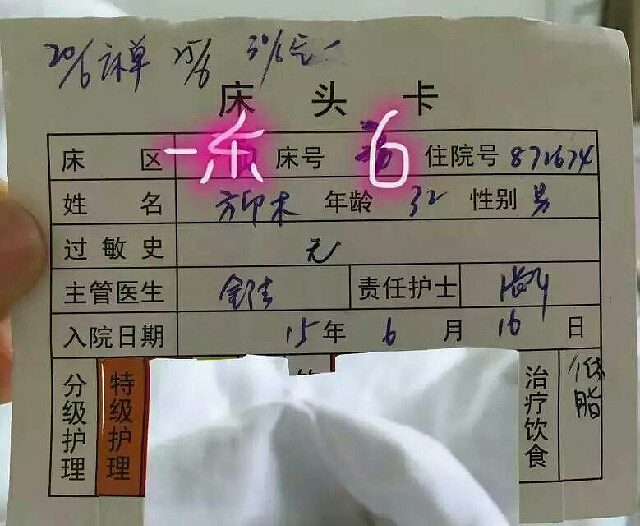 20/6 床单 25/6 30/6
床头卡
床 区 一东 床号 6 住院号 871674
姓 名 方印木 年龄 32 性别 男
过敏史 无
主管医生 责任护士
入院日期 15年 6月 16日
分级护理 特级护理 治疗饮食 低脂